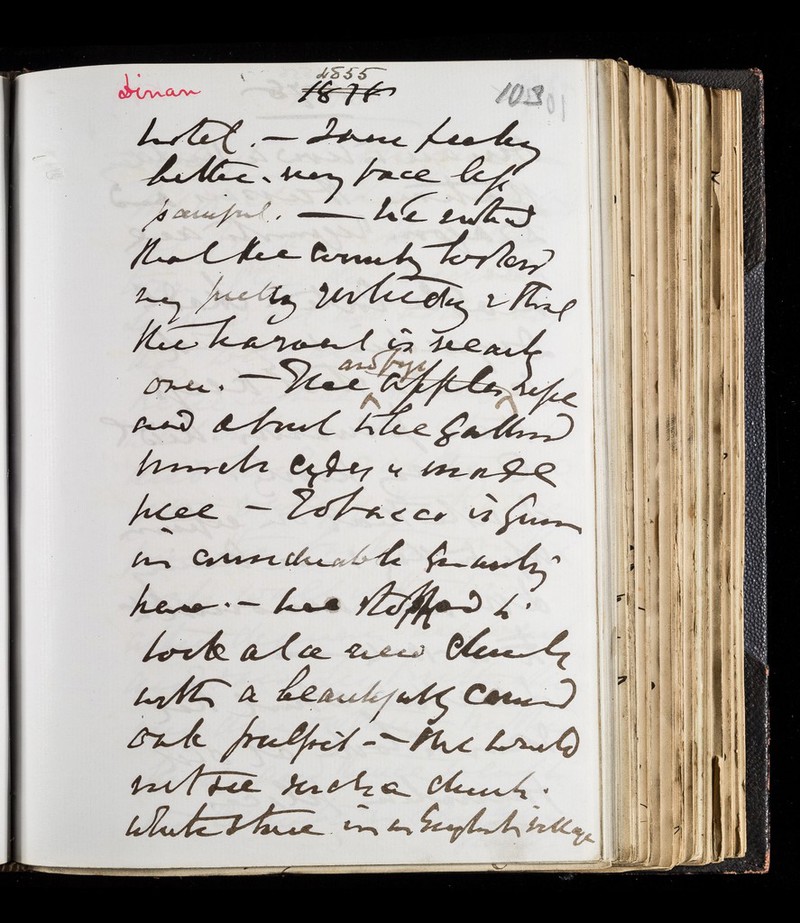 Dinan 1876 103
hotel. — I am feeling
better. my face less
painful. — We noticed
that the country looked
very pretty yesterday & that
the harvest is nearly
over. — The apples ripe
and about to be gathered
much cyder is made
here — Tobacco is grown
in considerable quantity
here. — we stopped to
look at a new church
with a beautifully carved
oak pulpit — One would
not see such a church.
white stone in an English village